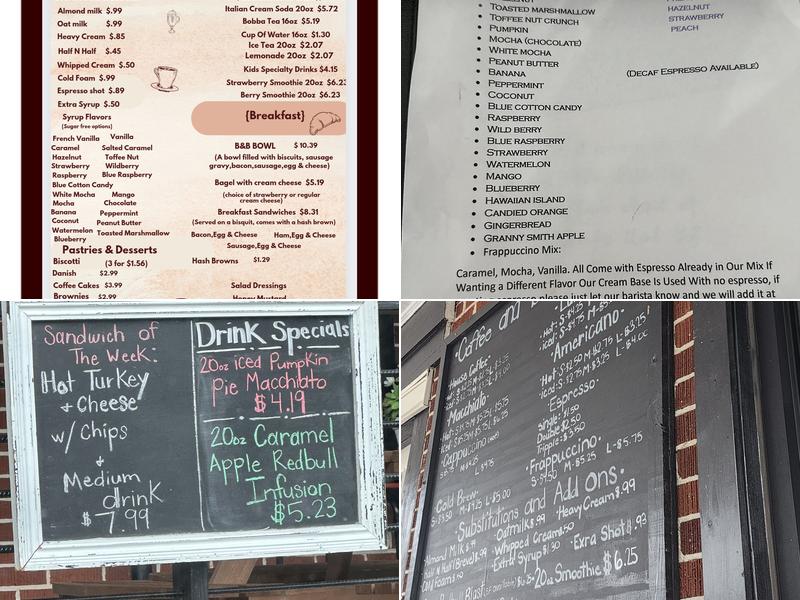 Almond milk $.99
Oat milk $.99
Heavy Cream $.85
Half N Half $.45
Whipped Cream $.50
Cold Foam $.99
Espresso shot $.89
Extra Syrup $.50
Syrup Flavors
(Sugar free options)
French Vanilla Vanilla
Caramel Salted Caramel
Hazelnut Toffee Nut
Strawberry Wildberry
Raspberry Blue Raspberry
Blue Cotton Candy
White Mocha Mango
Mocha Chocolate
Banana Peppermint
Coconut Peanut Butter
Watermelon Toasted Marshmallow
Blueberry
Pastries & Desserts
Biscotti (3 for $1.56)
Danish $2.99
Coffee Cakes $3.99
Brownies $2.99
Italian Cream Soda 20oz $5.72
Bobba Tea 16oz $5.19
Cup Of Water 16oz $1.30
Ice Tea 20oz $2.07
Lemonade 20oz $2.07
Kids Specialty Drinks $4.15
Strawberry Smoothie 20oz $6.23
Berry Smoothie 20oz $6.23
{Breakfast}
B&B BOWL $10.39
(A bowl filled with biscuits, sausage
gravy,bacon,sausage,egg & cheese)
Bagel with cream cheese $5.19
(choice of strawberry or regular
cream cheese)
Breakfast Sandwiches $8.31
(Served on a bisquit, comes with a hash brown)
Bacon,Egg & Cheese Ham,Egg & Cheese
Sausage,Egg & Cheese
Hash Browns $1.29
Salad Dressings
Honey Mustard
• TOASTED MARSHMALLOW
• TOFFEE NUT CRUNCH
• PUMPKIN
• MOCHA (CHOCOLATE)
• WHITE MOCHA
• PEANUT BUTTER
• BANANA
• PEPPERMINT
• COCONUT
• BLUE COTTON CANDY
• RASPBERRY
• WILD BERRY
• BLUE RASPBERRY
• STRAWBERRY
• WATERMELON
• MANGO
• BLUEBERRY
• HAWAIIAN ISLAND
• CANDIED ORANGE
• GINGERBREAD
• GRANNY SMITH APPLE
• Frappuccino Mix:
HAZELNUT
STRAWBERRY
PEACH
(DECAF ESPRESSO AVAILABLE)
Caramel, Mocha, Vanilla. All Come with Espresso Already in Our Mix If
Wanting a Different Flavor Our Cream Base Is Used With no espresso, if
please just let our barista know and we will add it at
Sandwich of
The Week:
Hot Turkey
+ Cheese
w/ Chips
+
Medium
drink
$7.99
Drink Specials
20oz iced Pumpkin
Pie Macchiato
$4.19
20oz Caramel
Apple Redbull
Infusion
$5.23
•Coffee and
House Coffee
Macchiato
Cappuccino
Cold Brew
S-$3.50 M-$4.25 L-$5.00
•Americano•
Hot-S-$2.50 M-$2.75 L-$3.25
Iced-S-$2.75 M-$3.25 L-$4.00
•Espresso•
Single-$1.50
Double-$2.50
Tripple-$3.50
•Frappuccino•
S-$4.50 M-$5.25 L-$5.75
•Substitutions and Add Ons•
Almond Milk $.99 •Oatmilk $.99 •Heavy Cream $.99
Whipped Cream $.50
Extra Syrup $1.30 •Exra Shot $1.93
Cold Foam
20oz Smoothie $6.25